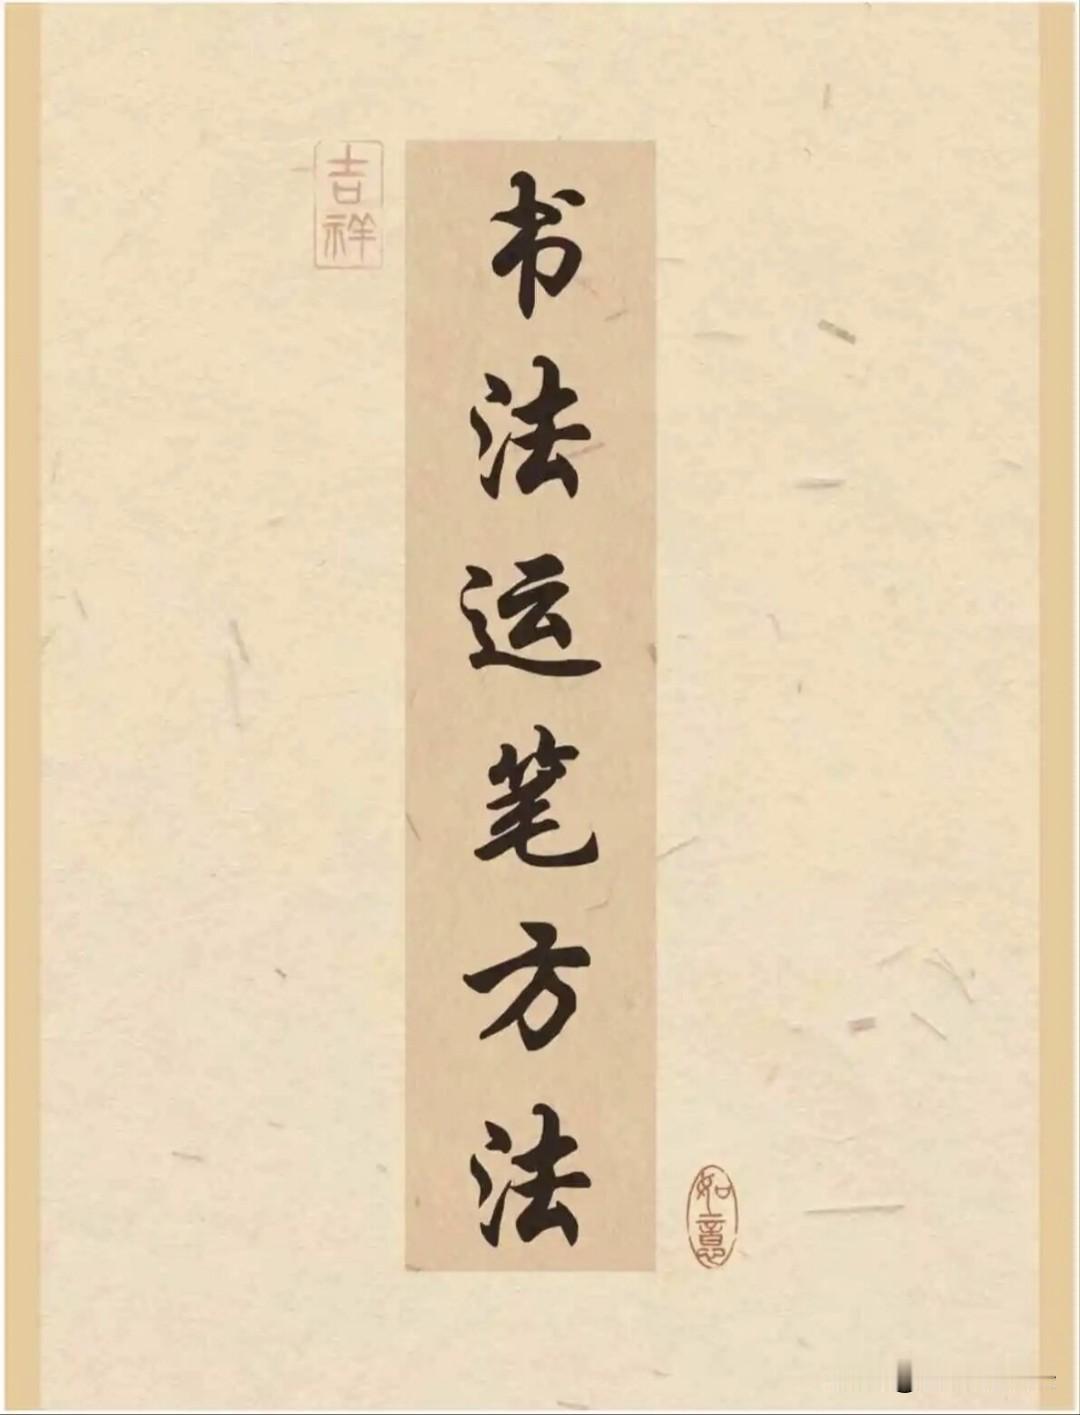 书法运笔方法
吉祥
如意